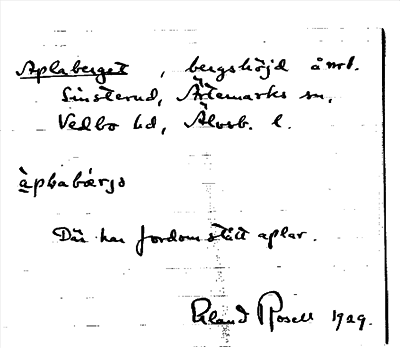 Aplaberget, bergshöjd å nrt.
Sinsterud, Ärtemarks sn,
Vedbo hd, Älvsb. l.
àplabǽrjə
Där har fordom stått aplar.
Erland Rosell 1929.